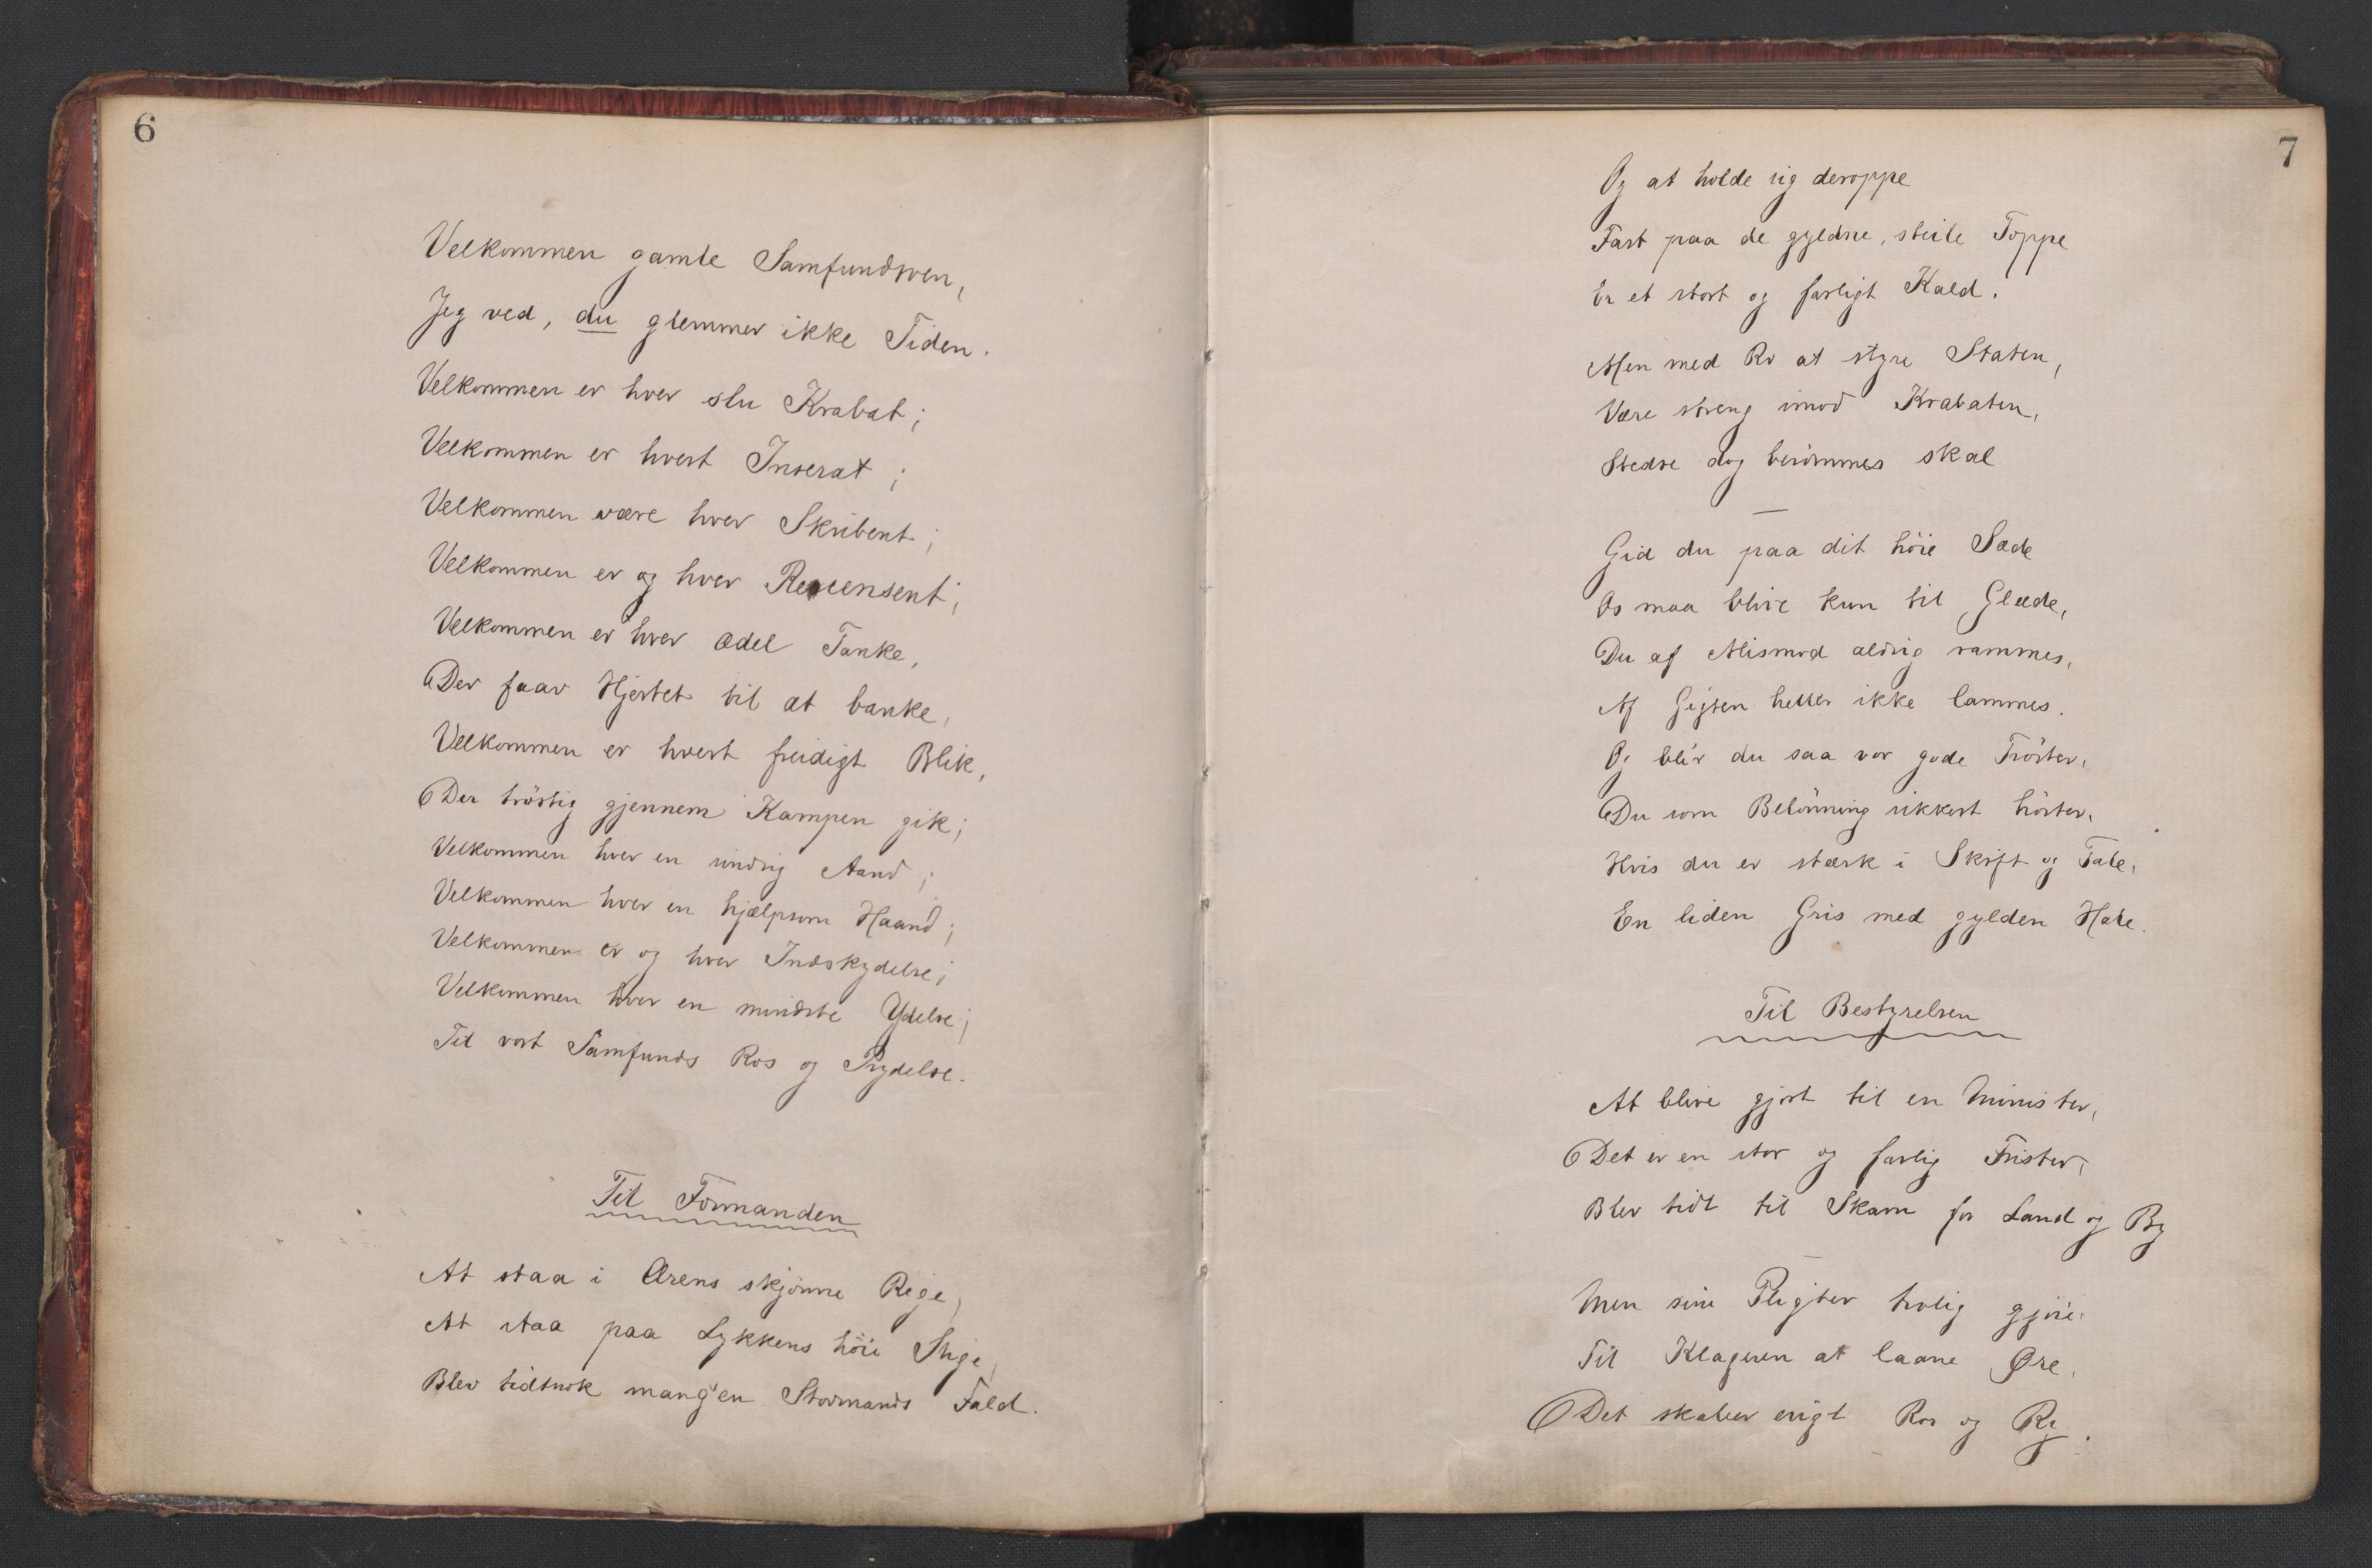 6
Velkommen gamle Samfundsven,
Jeg ved, du glemmer ikke Tiden.
Velkommen er hver slu Krabat;
Velkommen er hvert Inserat;
Velkommen være hver Skribent;
Velkommen er og hver Recensent;
Velkommen er hver ædel Tanke,
Der faar Hjertet til at banke,
Velkommen er hvert freidigt Blik,
Der trøstig gjennem Kampen gik;
Velkommen hver en vindrig Aand;
Velkommen hver en hjælpsom Haand;
Velkommen er og hver Indskydelse;
Velkommen hver en mindste Ydelse;
Til vort Samfunds Ros og Prydelse.
Til Formanden
At staa i Ærens skjønne Rige,
At staa paa Lykkens höie Stige,
Blev tidtnok mang'en Stormands Fald.
7
Og at holde sig deroppe
Fast paa de gyldne, steile Toppe
Er et stort og farligt Kald.
Men med Ro at styre Staten,
Være streng imod Krabaten,
Stedse dog berömmes skal
Gid du paa dit höie Sæde
Os maa blive kun til Glæde,
Du af Mismod aldrig rammes,
Af Gigten heller ikke lammes.
Og bli'r du saa vor gode Tröster,
Du som Belönning sikkert höster,
Hvis du er stærk i Skrift og Tale,
En liden Gris med gylden Hale.
Til Bestyrelsen
At blive gjort til en Minister,
Det er en stor og farlig Frister,
Blev tidt til Skam for Land og By
Men sine Pligter trolig gjöre.
Til Klageren at laane Øre,
Det skaber evigt Ros og Ry.